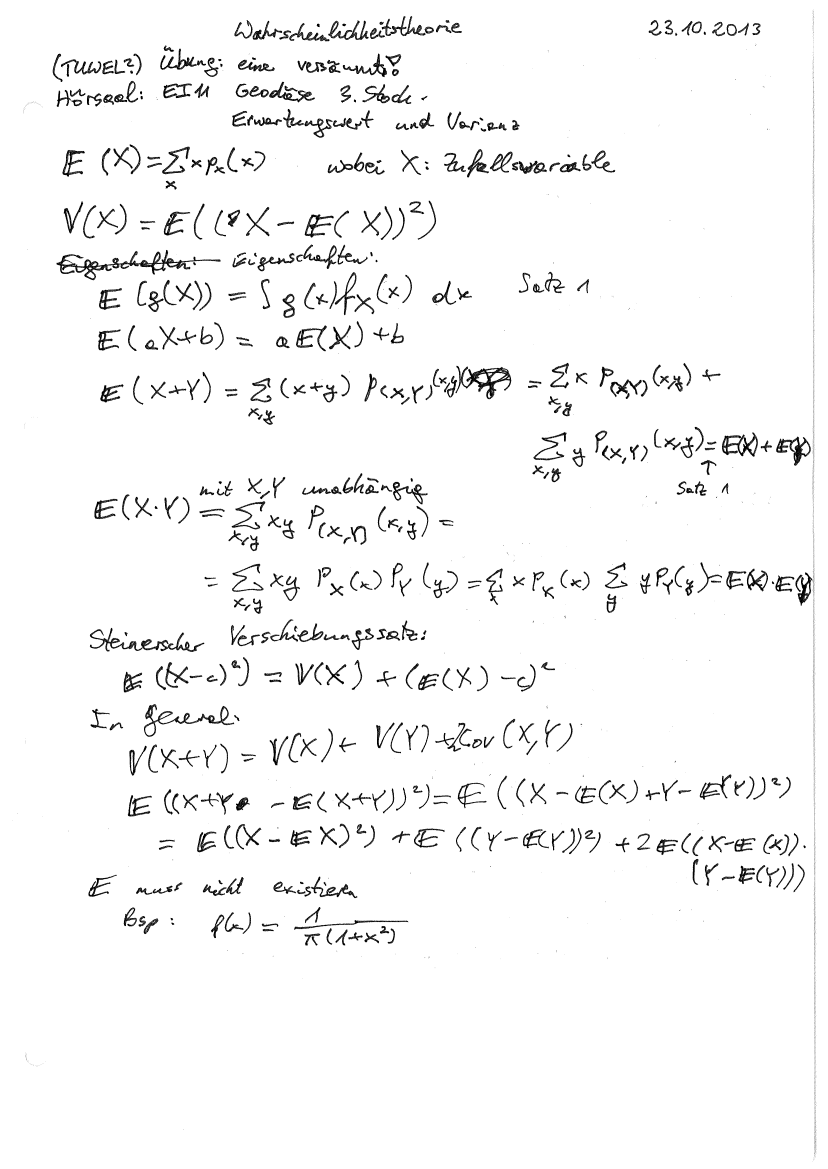 Wahrscheinlichkeitstheorie 23.10.2013
(TUWEL?) Übung: eine versäumt?
Hörsaal: EI11 Geodäsie 3. Stock.
Erwartungswert und Varianz
𝔼(X) = ∑_x x p_x(x) wobei X: Zufallsvariable
V(X) = 𝔼((X − 𝔼(X))²)
Eigenschaften: Eigenschaften:
𝔼(g(X)) = ∫ g(x) f_X(x) dx Satz 1
𝔼(aX+b) = a𝔼(X)+b
𝔼(X+Y) = ∑_{x,y} (x+y) P_{(X,Y)}(x,y) = ∑_{x,y} x P_{(X,Y)}(x,y) +
∑_{x,y} y P_{(X,Y)}(x,y) = 𝔼(X)+𝔼(Y)
↑
Satz 1
mit X,Y unabhängig
𝔼(X·Y) = ∑_{x,y} xy P_{(X,Y)}(x,y) =
= ∑_{x,y} xy P_X(x) P_Y(y) = ∑_x x P_X(x) ∑_y y P_Y(y) = 𝔼(X)·𝔼(Y)
Steinerscher Verschiebungssatz:
𝔼((X−c)²) = V(X) + (𝔼(X) −c)²
In general:
V(X+Y) = V(X) + V(Y) + 2Cov(X,Y)
𝔼((X+Y − 𝔼(X+Y))²) = 𝔼((X − 𝔼(X) + Y − 𝔼(Y))²)
= 𝔼((X − 𝔼X)²) + 𝔼((Y−𝔼(Y))²) + 2𝔼((X−𝔼(X))·
(Y−𝔼(Y)))
𝔼 muss nicht existieren
Bsp: f(x) = 1/(π(1+x²))